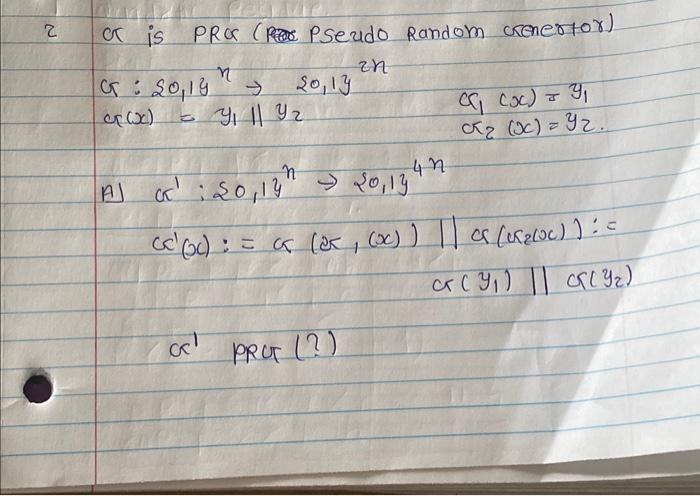 2 G is PRG (Pseudo Random Generator)
G : {0,1}ⁿ → {0,1}²ⁿ
G(x) = y₁ || y₂
G₁(x) = y₁
G₂(x) = y₂.
A] G' : {0,1}ⁿ → {0,1}⁴ⁿ
G'(x) := G(G₁(x)) || G(G₂(x)) :=
G(y₁) || G(y₂)
G' PRG (?)